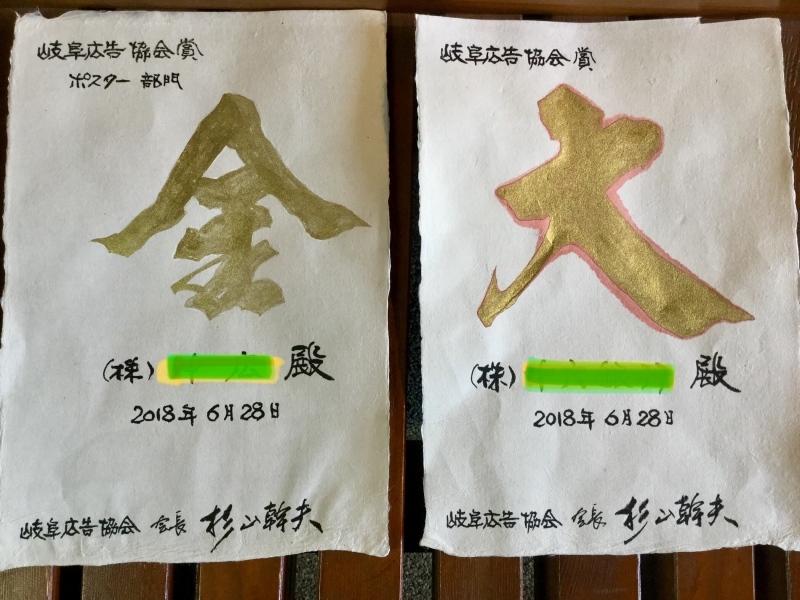 岐阜広告協会賞
ポスター部門
金
(株) 殿
2018年6月28日
岐阜広告協会 会長 杉山幹夫
岐阜広告協会賞
大
(株) 殿
2018年6月28日
岐阜広告協会 会長 杉山幹夫